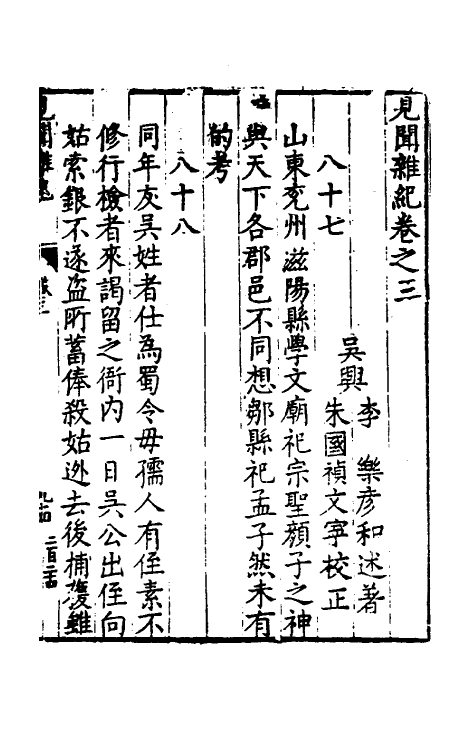 見聞雜紀卷之三
吳興
李　樂彥和述著
朱國禎文寧校正
八十七
山東兗州滋陽縣學文廟祀宗聖顏子之神
與天下各郡邑不同想鄒縣祀孟子然未有
的考
八十八
同年友吳姓者仕為蜀令毋孺人有侄素不
修行檢者來謁留之衙內一日吳公出侄向
姑索銀不遂盜所蓄俸殺姑迯去後捕獲雖